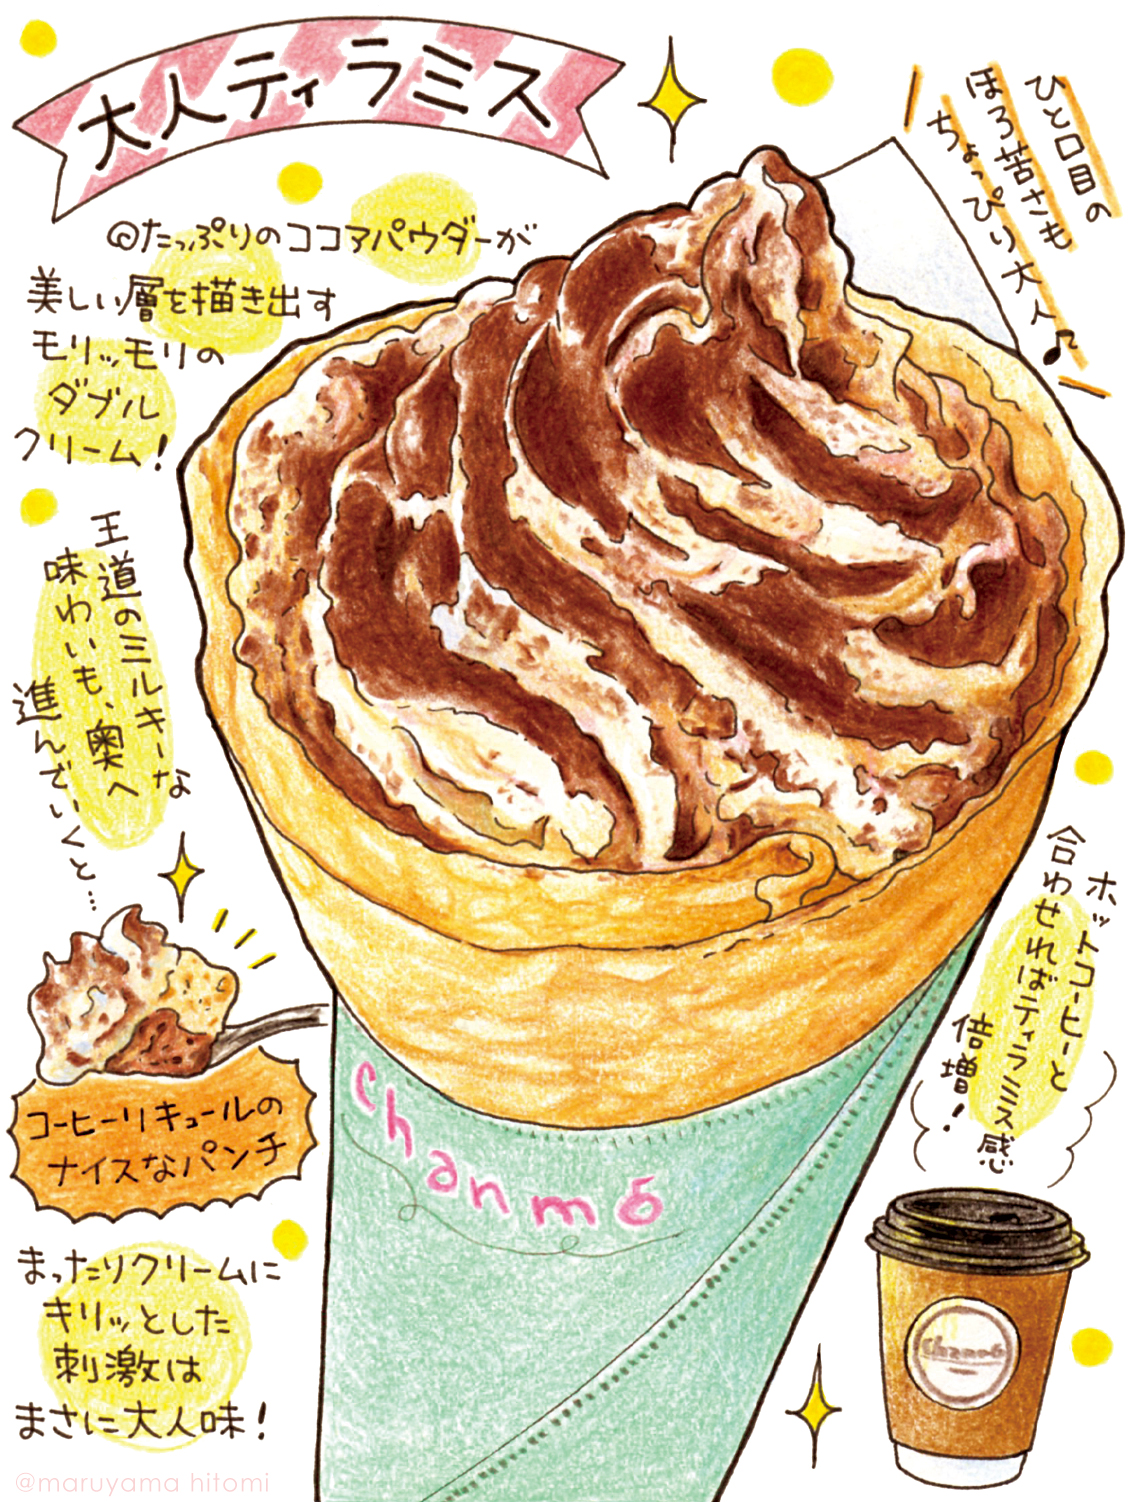 大人ティラミス
ひと口目の
ほろ苦さも
ちょっぴり大人♪
@たっぷりのココアパウダーが
美しい層を描き出す
モリッモリの
ダブル
クリーム!
王道のミルキーな
味わいも、奥へ
進んでいくと…
コーヒーリキュールの
ナイスなパンチ
まったりクリームに
キリッとした
刺激は
まさに大人味!
ホットコーヒーと
合わせればティラミス感
倍増!
chanmo
chanmo
@maruyama hitomi